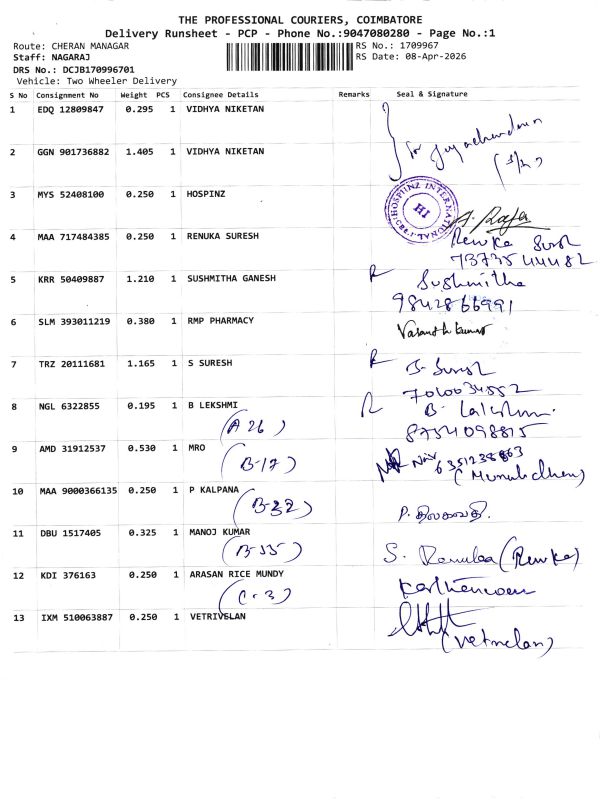 THE PROFESSIONAL COURIERS, COIMBATORE
Delivery Runsheet - PCP - Phone No.:9047080280 - Page No.:1
Route: CHERAN MANAGAR RS No.: 1709967
Staff: NAGARAJ RS Date: 08-Apr-2026
DRS No.: DCJB170996701
Vehicle: Two Wheeler Delivery
S No Consignment No Weight PCS Consignee Details Remarks Seal & Signature
1 EDQ 12809847 0.295 1 VIDHYA NIKETAN
2 GGN 901736882 1.405 1 VIDHYA NIKETAN
3 MYS 52408100 0.250 1 HOSPINZ
HOSPIINZ INTERNATIONAL
HI
4 MAA 717484385 0.250 1 RENUKA SURESH
7373544482
5 KRR 50409887 1.210 1 SUSHMITHA GANESH Sushmitha
9842866991
6 SLM 393011219 0.380 1 RMP PHARMACY Vasanthkumar
7 TRZ 20111681 1.165 1 S SURESH
8 NGL 6322855 0.195 1 B LEKSHMI
(A 26) 8754098815
9 AMD 31912537 0.530 1 MRO
(B-17)
10 MAA 9000366135 0.250 1 P KALPANA
(B-32)
11 DBU 1517405 0.325 1 MANOJ KUMAR
(B-55)
12 KDI 376163 0.250 1 ARASAN RICE MUNDY
(C-3)
13 IXM 510063887 0.250 1 VETRIVELAN
(Vetrivelan)